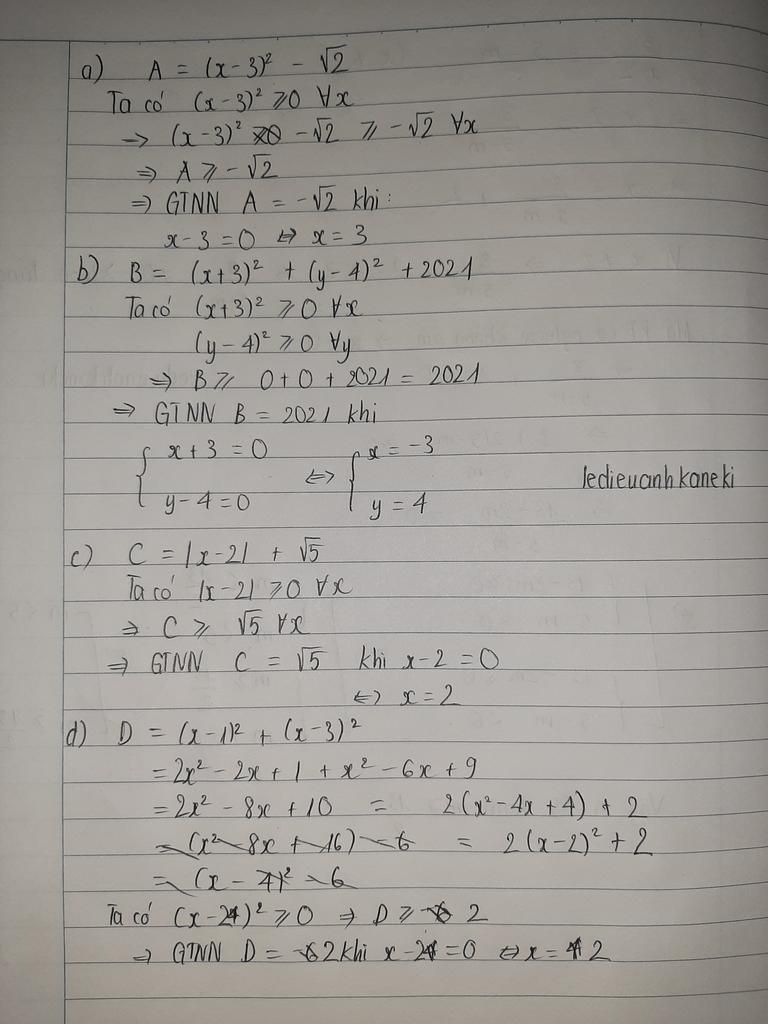 a) A = (x-3)² - √2
Ta có (x-3)² ≥ 0 ∀x
→ (x-3)² - √2 ≥ -√2 ∀x
⇒ A ≥ -√2
⇒ GTNN A = -√2 khi:
x-3 = 0 ⇔ x = 3
b) B = (x+3)² + (y-4)² + 2021
Ta có (x+3)² ≥ 0 ∀x
(y-4)² ≥ 0 ∀y
⇒ B ≥ 0+0+2021 = 2021
⇒ GTNN B = 2021 khi
{ x+3 = 0 ⇔ { x = -3
y-4 = 0 y = 4
ledieuanhkaneki
c) C = |x-2| + √5
Ta có |x-2| ≥ 0 ∀x
⇒ C ≥ √5 ∀x
⇒ GTNN C = √5 khi x-2 = 0
⇔ x = 2
d) D = (x-1)² + (x-3)²
= 2x² - 2x + 1 + x² - 6x + 9
= 2x² - 8x + 10 = 2(x²-4x+4) + 2
= (x²-8x+16) - 6 = 2(x-2)² + 2
= (x-4)² - 6
Ta có (x-2)² ≥ 0 ⇒ D ≥ 2
⇒ GTNN D = 2 khi x-2 = 0 ⇔ x = 2